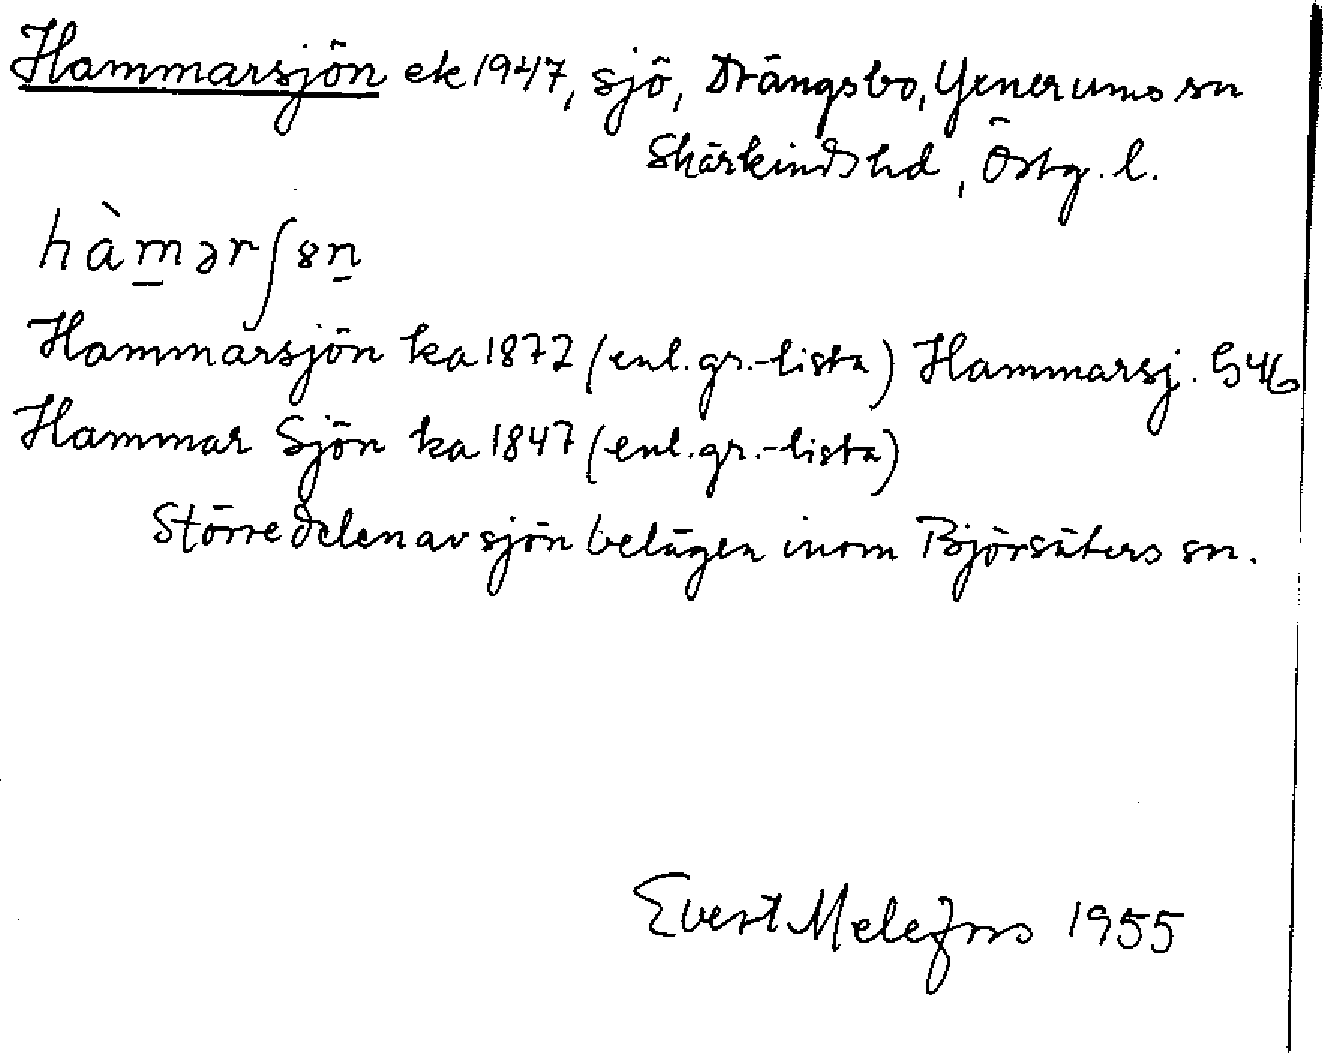 Hammarsjön ek 1947, sjö, Drängsbo, Yxnerums sn
Skärkinds hd, Östg. l.
hàm̠ərʃ8n̠
Hammarsjön ka 1872 (enl. gr.-lista) Hammarsj. G46
Hammar Sjön ka 1847 (enl. gr.-lista)
Större delen av sjön belägen inom Björsäters sn.
Evert Melefors 1955